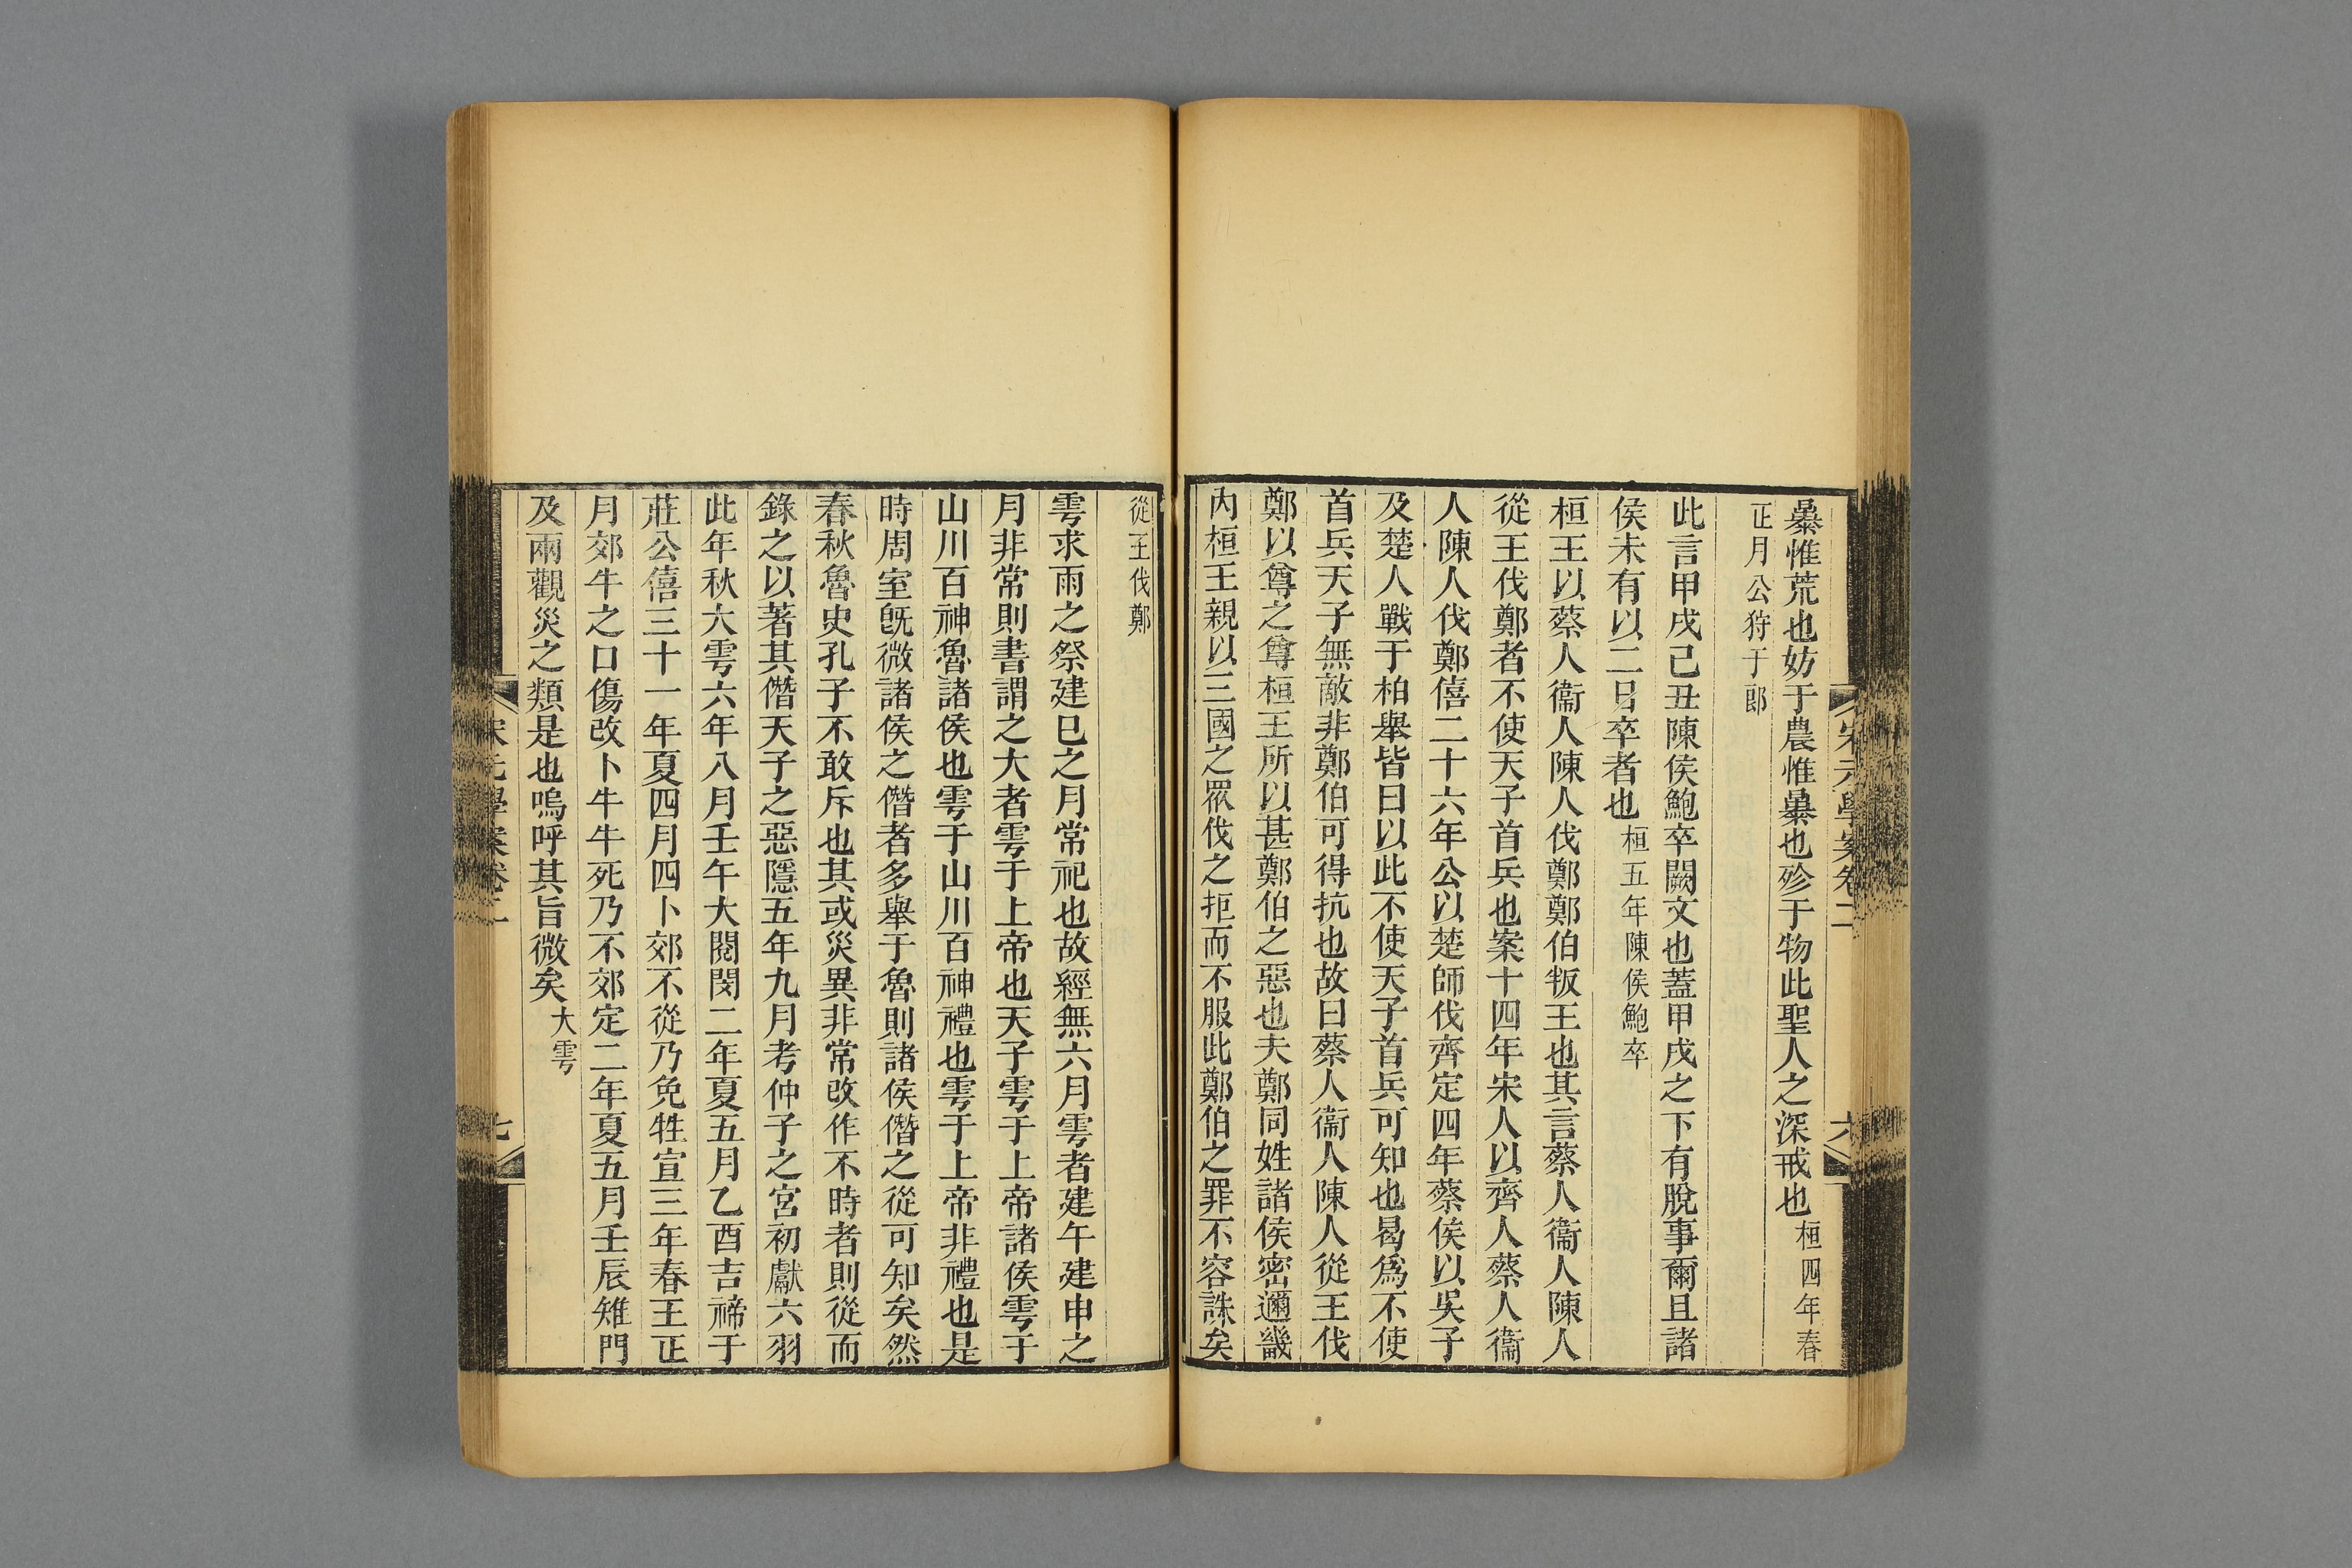 宋元學案卷二
六
暴惟荒也妨于農惟暴也殄于物此聖人之深戒也桓四年春
正月公狩于郎
此言甲戌己丑陳侯鮑卒闕文也蓋甲戌之下有脫事爾且諸
侯未有以二日卒者也桓五年陳侯鮑卒
桓王以蔡人衞人陳人伐鄭鄭伯叛王也其言蔡人衞人陳人
從王伐鄭者不使天子首兵也案十四年宋人以齊人蔡人衞
人陳人伐鄭僖二十六年公以楚師伐齊定四年蔡侯以吳子
及楚人戰于柏舉皆曰以此不使天子首兵可知也曷爲不使
首兵天子無敵非鄭伯可得抗也故曰蔡人衞人陳人從王伐
鄭以尊之尊桓王所以甚鄭伯之惡也夫鄭同姓諸侯密邇畿
內桓王親以三國之眾伐之拒而不服此鄭伯之罪不容誅矣
從王伐鄭
雩求雨之祭建巳之月常祀也故經無六月雩者建午建申之
月非常則書謂之大者雩于上帝也天子雩于上帝諸侯雩于
山川百神魯諸侯也雩于山川百神禮也雩于上帝非禮也是
時周室旣微諸侯之僭者多舉于魯則諸侯僭之從可知矣然
春秋魯史孔子不敢斥也其或災異非常改作不時者則從而
錄之以著其僭天子之惡隱五年九月考仲子之宮初獻六羽
此年秋大雩六年八月壬午大閱閔二年夏五月乙酉吉禘于
莊公僖三十一年夏四月四卜郊不從乃免牲宣三年春王正
月郊牛之口傷改卜牛牛死乃不郊定二年夏五月壬辰雉門
及兩觀災之類是也嗚呼其旨微矣大雩
宋元學案卷二
七